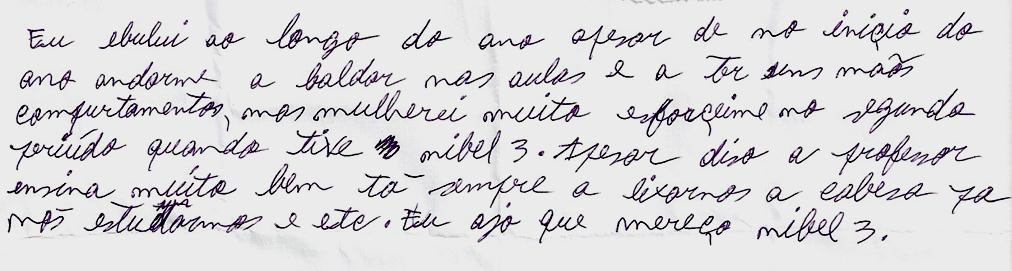 Eu ebului ao longo do ano apesar de no iniçio do
ano andarme a baldar nas aulas e a ter uns maõs
compurtamentos, mas mulherei muito esforçeime no segundo
priúdo quando tive nibel 3. Apesar diso a professor
ensina muito bem tá sempre a lixarnos a cabesa pa
nós estudarmos e etc. Eu ajo que mereço nibel 3.